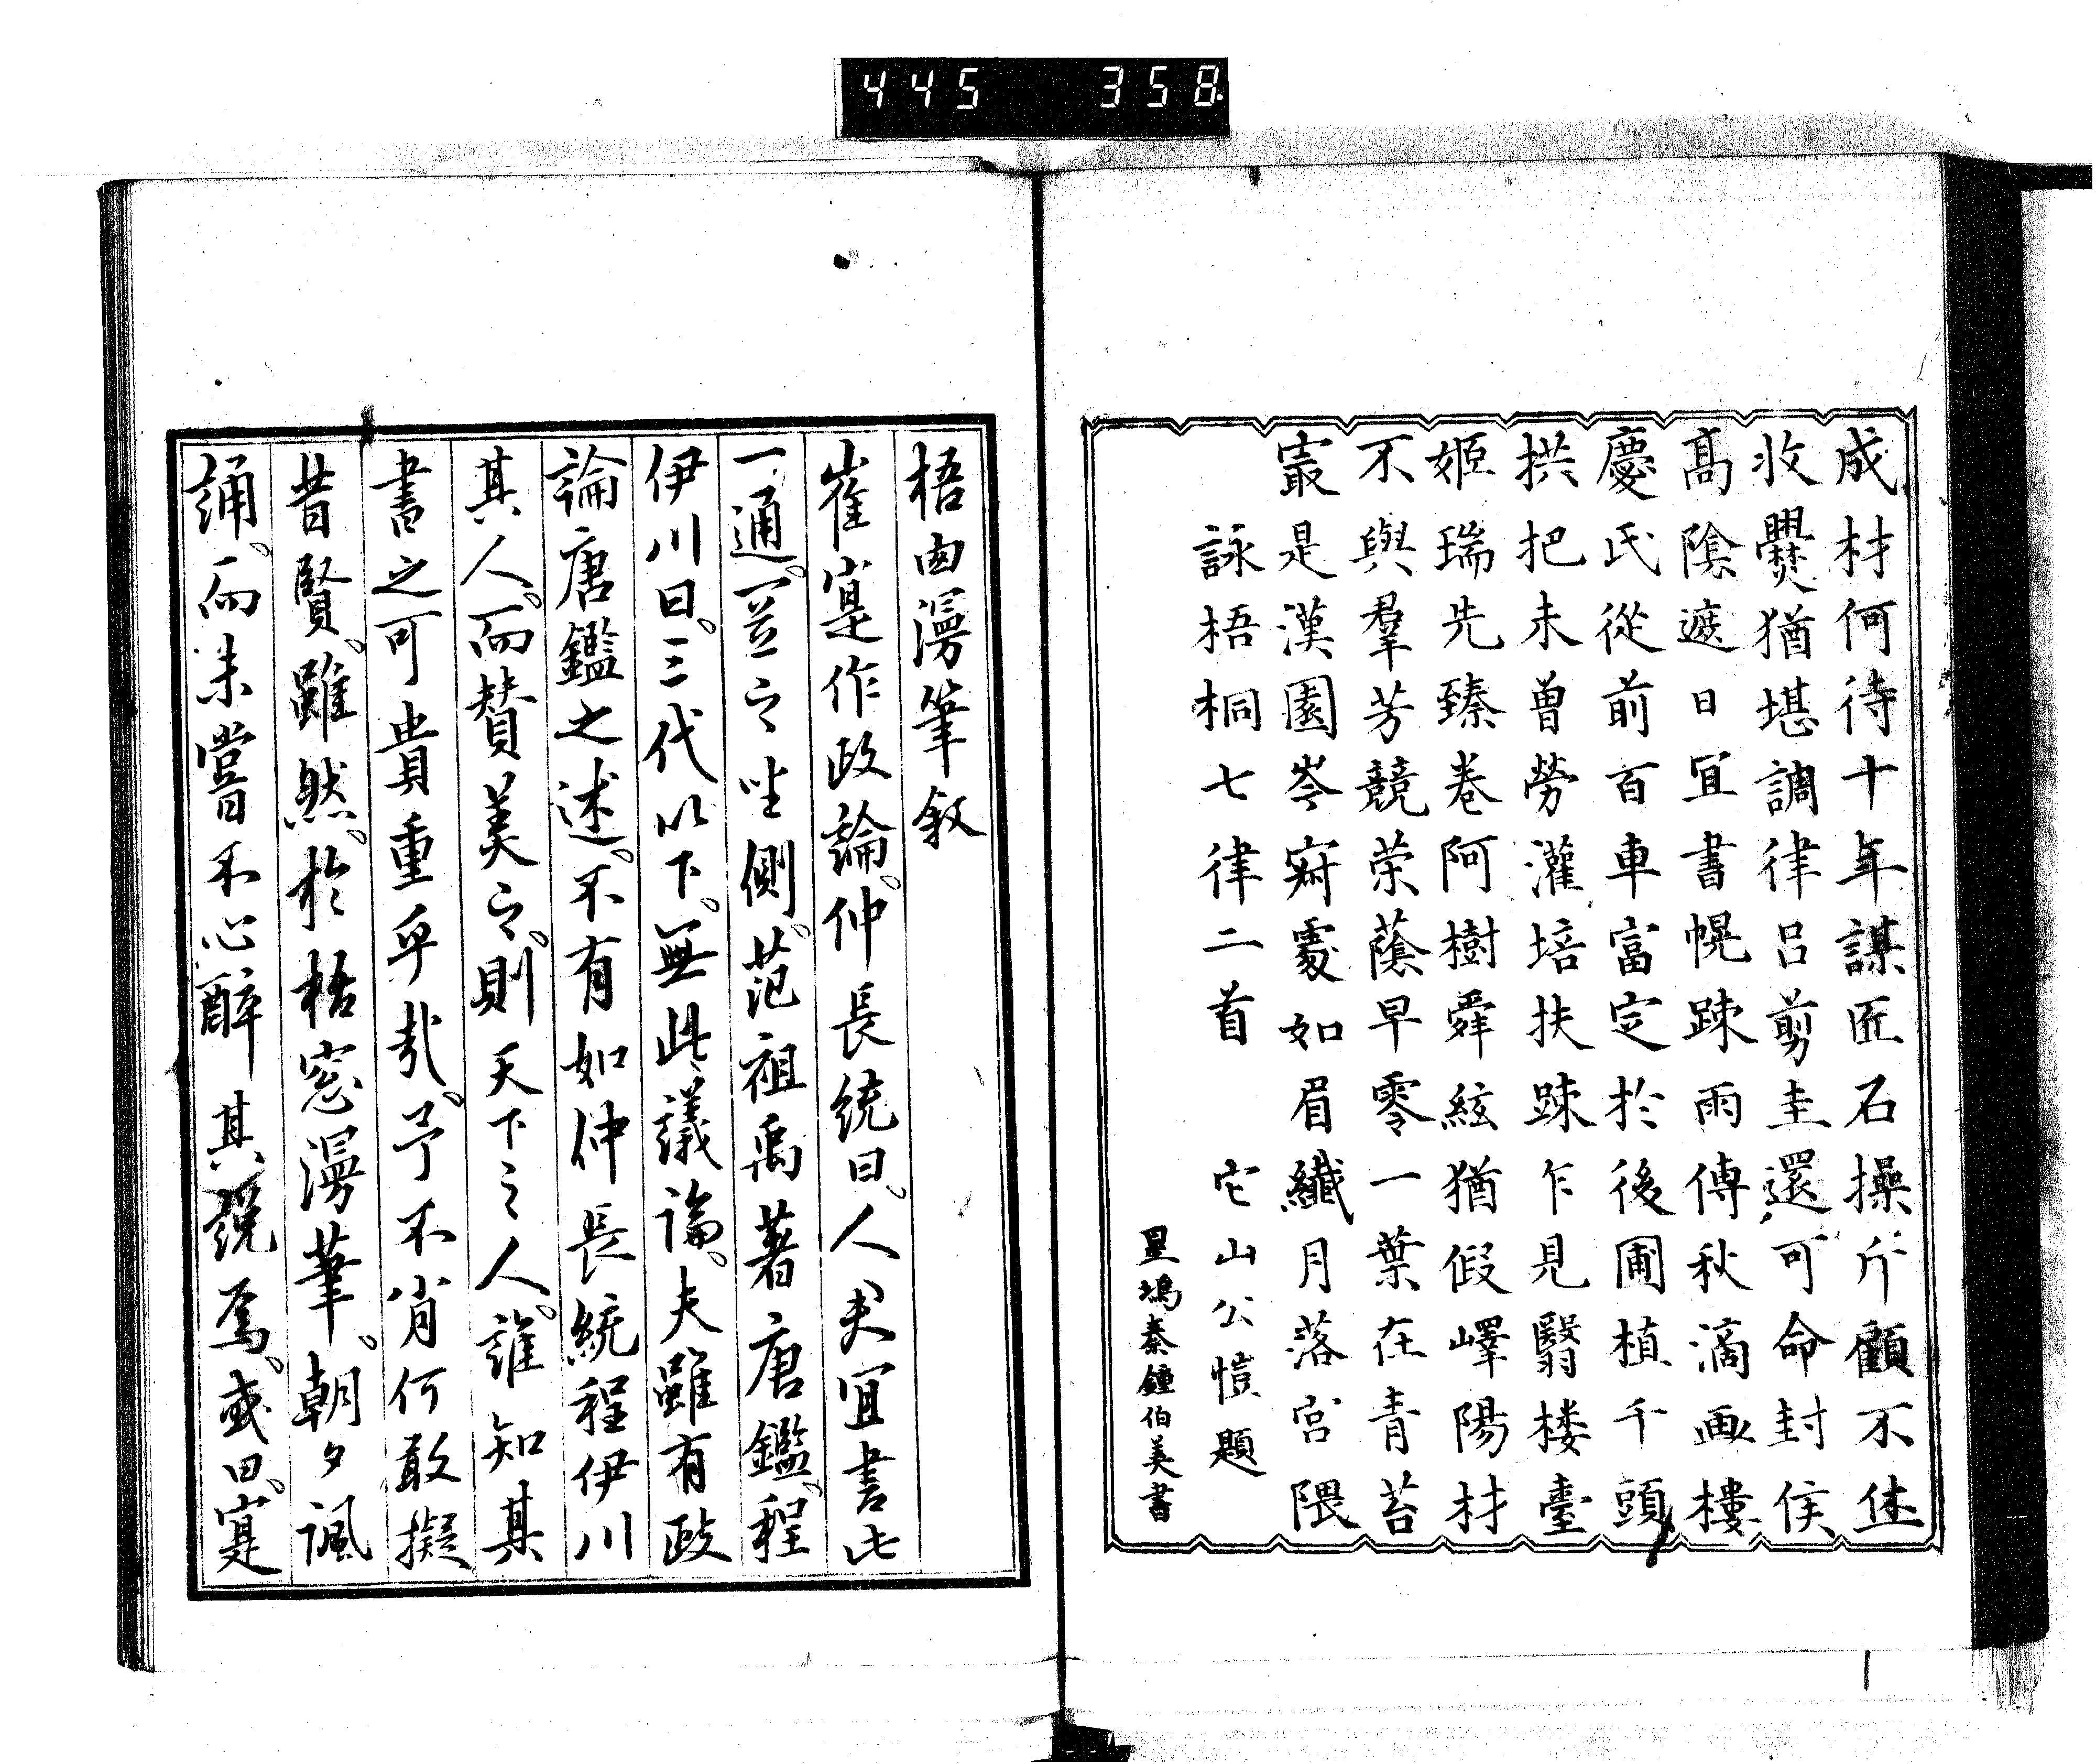 445 358
成材何待十年謀匠石操斤顧不休
收爨猶堪調律呂剪圭還可命封侯
髙陰遮日宜書幌踈雨傳秋滴画樓
慶氏從前百車富定於後圃植千頭
拱把未曽勞灌培扶踈乍見翳楼臺
姬瑞先臻巻阿樹舜絃猶假嶧陽材
不與羣芳競荣蔭早零一葉在青苔
寂是漢園岑寂處如眉纎月落宮隈
詠梧桐七律二首 宅山公愷題
星塢秦鍾伯美書
梧囱漫筆叙
崔寔作政論、仲長統曰、人夫宜書此
一通、置之坐側、范祖禹著唐鑑、程
伊川曰、三代以下、無此議論、夫雖有政
論唐鑑之述、不有如仲長統程伊川
其人、而賛美之、則天下之人、誰知其
書之可貴重乎哉、予不肖何敢擬
昔賢、雖然、於梧窓漫筆、朝夕諷
誦、而未嘗不心醉其説焉、或曰、寔